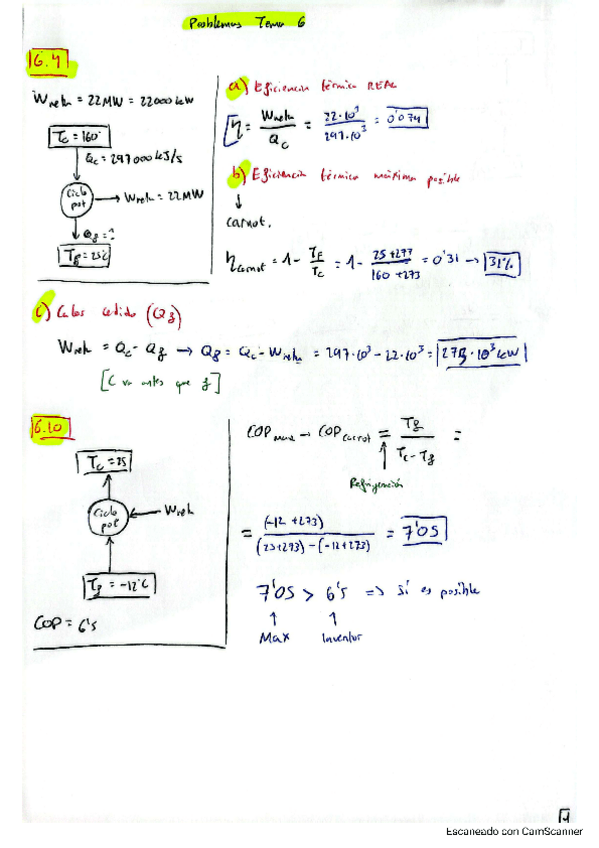 Problemas Tema 6
6.4
Wneto = 22MW = 22000 kW
Tc = 160°
Qc = 297000 kJ/s
Ciclo pot
Wneto = 22MW
Qf = ?
Tf = 25°C
a) Eficiencia térmica REAL
η = Wneto / Qc = 22·10³ / 297·10³ = 0'074
b) Eficiencia térmica máxima posible
↓
Carnot.
ηcarnot = 1 - TF / Tc = 1 - 25+277 / 160+273 = 0'31 → 31%
c) Calor cedido (Qf)
Wneto = Qc - Qf → Qf = Qc - Wneto = 297·10³ - 22·10³ = 275·10³ kW
[C va antes que f]
6.10
Tc = 25
Ciclo pot
Wneto
Tf = -12°C
COP = 6'5
COPmax → COPcarnot = Tf / Tc - Tf =
↑
Refrigeración
= (-12 + 273) / (25+273) - (-12+273) = 7'05
7'05 > 6'5 => sí es posible
↑ ↑
Max Inventor
Escaneado con CamScanner